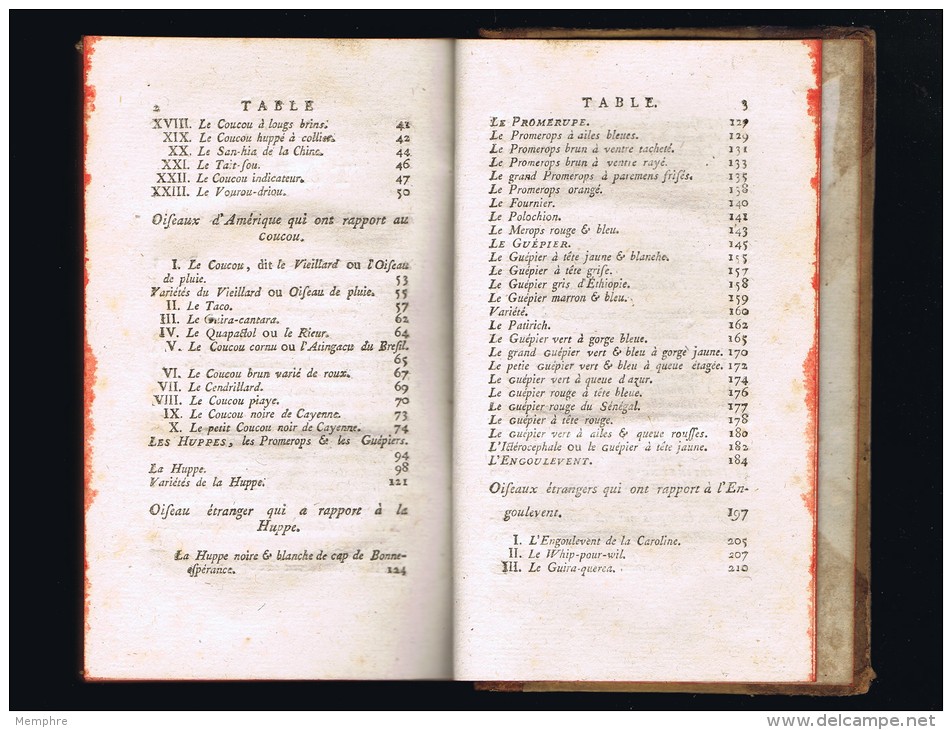 2 TABLE
XVIII. Le Coucou à lougs brins. 41
XIX. Le Coucou huppé à collier. 42
XX. Le San-hia de la Chine. 44
XXI. Le Tait-sou. 46
XXII. Le Coucou indicateur. 47
XXIII. Le Vourou-driou. 50
Oiſeaux d'Amérique qui ont rapport au
Coucou.
I. Le Coucou, dit le Vieillard ou l'Oiſeau
de pluie. 53
Variétés du Vieillard ou Oiſeau de pluie. 55
II. Le Taco. 57
III. Le Guira-cantara. 62
IV. Le Quapactol ou le Rieur. 64
V. Le Coucou cornu ou l'Atingacu du Breſil.
65
VI. Le Coucou brun varié de roux. 67
VII. Le Cendrillard. 69
VIII. Le Coucou piaye. 70
IX. Le Coucou noire de Cayenne. 73
X. Le petit Coucou noir de Cayenne. 74
LES HUPPES, les Promerops & les Guépiers.
94
La Huppe. 98
Variétés de la Huppe. 121
Oiſeau étranger qui a rapport à la
Huppe.
La Huppe noire & blanche de cap de Bonne-
eſpérance. 124
TABLE. 3
LE PROMERUPE. 127
Le Promerops à ailes bleues. 129
Le Promerops brun à ventre tacheté. 131
Le Promerops brun à ventre rayé. 133
Le grand Promerops à paremens friſés. 135
Le Promerops orangé. 138
Le Fournier. 140
Le Polochion. 141
Le Merops rouge & bleu. 143
LE GUÉPIER. 145
Le Guépier à tête jaune & blanche. 155
Le Guépier à tête griſe. 157
Le Guépier gris d'Ethiopie. 158
Le Guépier marron & bleu. 159
Variété. 160
Le Patirich. 162
Le Guépier vert à gorge bleue. 165
Le grand Guépier vert & bleu à gorge jaune. 170
Le petit Guépier vert & bleu à queue étagée. 172
Le Guépier vert à queue d'azur. 174
Le Guépier rouge à tête bleue. 176
Le Guépier rouge du Sénégal. 177
Le Guépier à tête rouge. 178
Le Guépier vert à ailes & queue rouſſes. 180
L'Ictérocephale ou le Guépier à tête jaune. 182
L'ENGOULEVENT. 184
Oiſeaux étrangers qui ont rapport à l'En-
goulevent. 197
I. L'Engoulevent de la Caroline. 205
II. Le Whip-pour-wil. 207
III. Le Guira-querea. 210
Memphre
www.delcampe.net